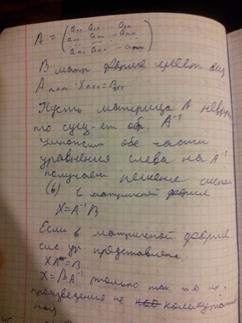 A = (a₁₁ a₁₂ ... a₁ₙ
a₂₁ a₂₂ ... a₂ₙ
В матр. форме имеет вид
Aₙₓₙ · Xₙₓₙ = Bₙₓₙ
Пусть матрица А невыр
то сущ-ет обр. A⁻¹
Умножим обе части
уравнения слева на A⁻¹
получаем решение систем
(6) в матричной форме
X = A⁻¹B
Если в матричной форме
сис. ур. представлена
XA = B
только так т.к.
произведения не коммутат